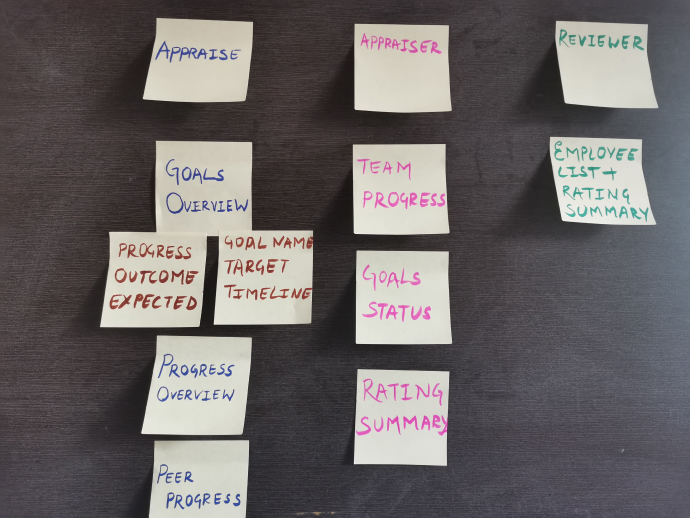 APPRAISE
GOALS
OVERVIEW
PROGRESS
OUTCOME
EXPECTED
GOAL NAME
TARGET
TIMELINE
PROGRESS
OVERVIEW
PEER
PROGRESS
APPRAISER
TEAM
PROGRESS
GOALS
STATUS
RATING
SUMMARY
REVIEWER
EMPLOYEE
LIST +
RATING
SUMMARY